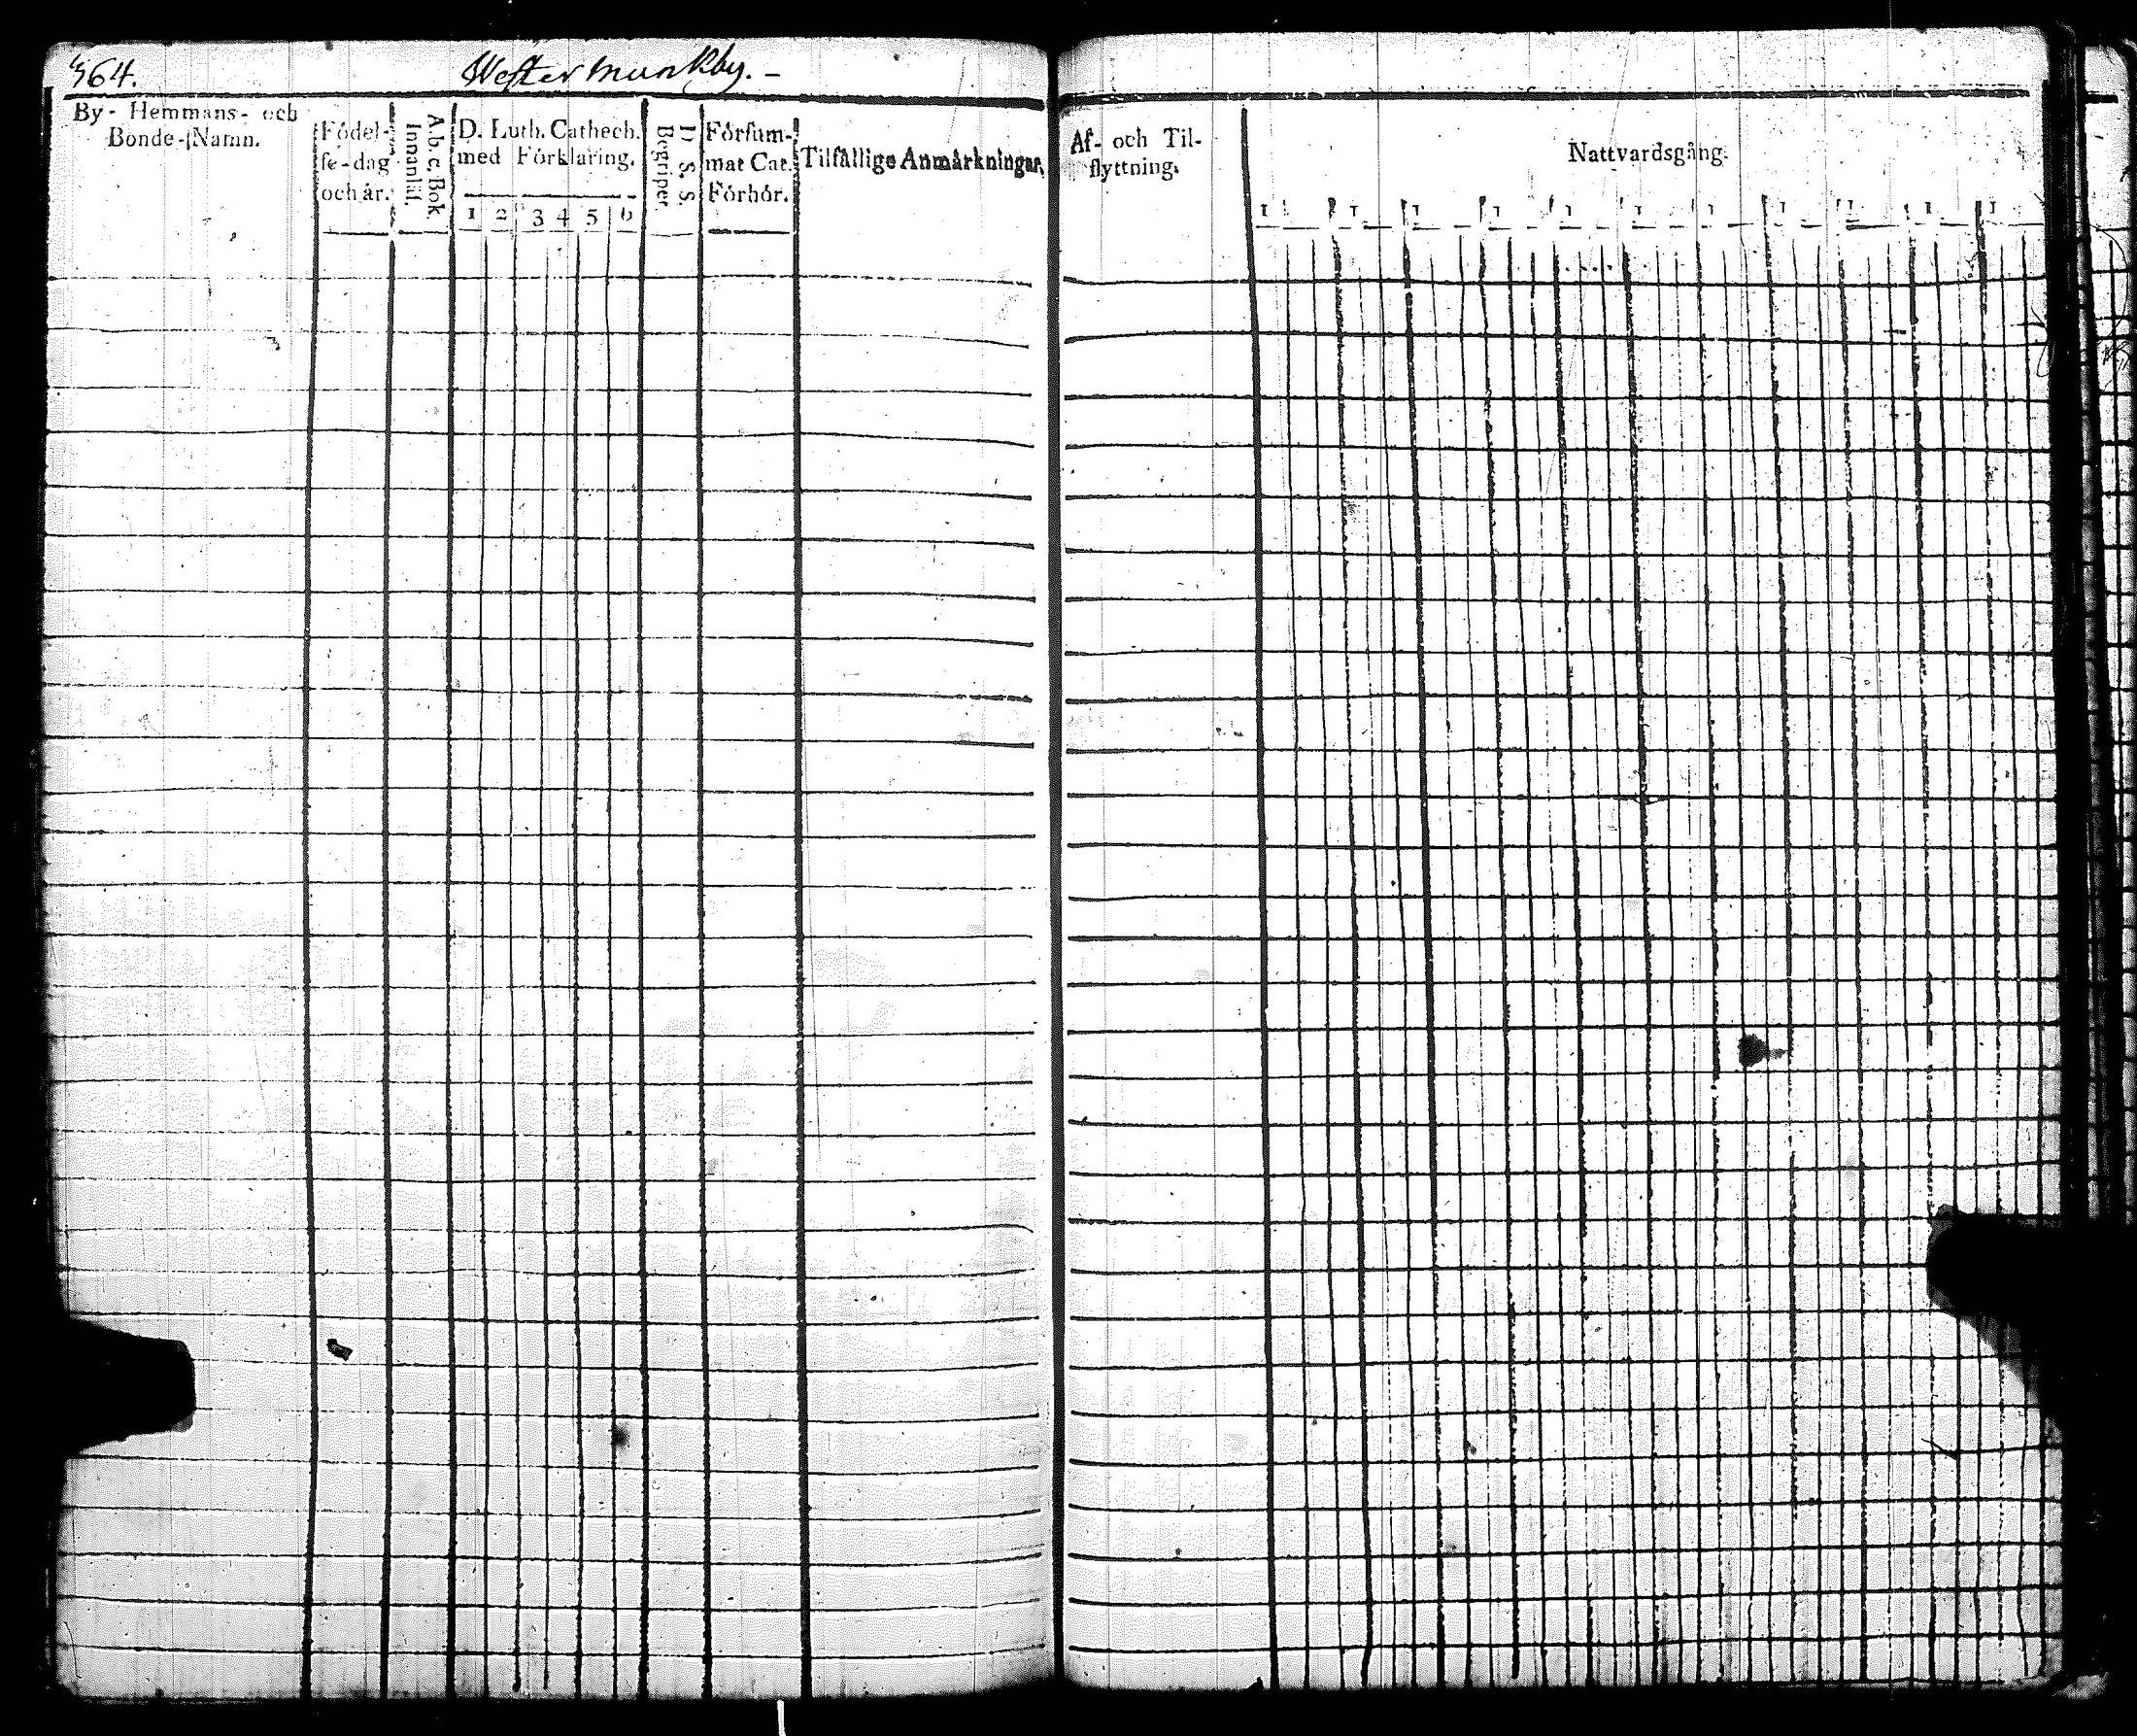 364. Westermunkby. -
By- Hemmans- och
Bonde-Namn.
Födel-
se-dag
och år.
A.b.c. Bok.
Innanläs.
D. Luth. Cathech.
med Förklaring.
1 2 3 4 5 6
D. S. S.
Begriper.
Försum-
mat Cat.
Förhör.
Tilfällige Anmärkningar.
Af- och Til-
flyttning.
Nattvardsgång.
1 1 1 1 1 1 1 1 1 1 1